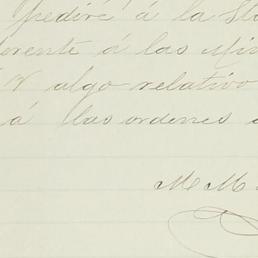 pediré á la
erente á las
algo relativo
á las ordenes
M M